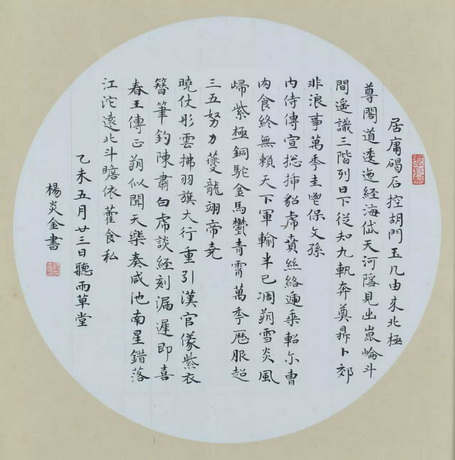 居庸碣石控胡門玉几由来北極
尊閣道逶迤經海岱天河隱見出崑崙斗
間遥識三階列日下從知九軌奔奠鼎卜郊
非浪事萬季主鬯保文孫
内侍傳宣捴揷貂虎賁絲絡
乗軺尔曹
肉食終無賴天下軍輸半已凋朔雪炎風
歸紫極銅駝金馬鬱青霄萬季厯服超
三五努力夔龍翊帝堯
曉仗彤雲拂羽旗大行重引漢官儀紫衣
簪筆鈞陳肅白虎談經刻漏遲即喜
春王傳正朔似聞天樂奏咸池南星錯落
江沱遠北斗瞻依藿食私
乙未五月廿三日聽雨草堂
楊炎金書